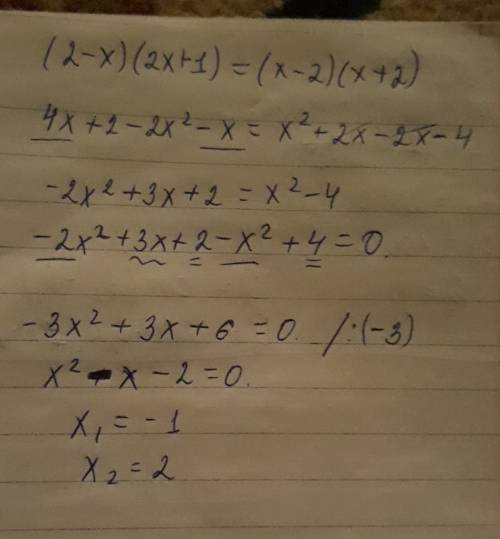 (2-x)(2x+1)=(x-2)(x+2)
4x+2-2x²-x=x²+2x-2x-4
-2x²+3x+2=x²-4
-2x²+3x+2-x²+4=0.
-3x²+3x+6=0. /:(-3)
x²-x-2=0.
x₁=-1
x₂=2